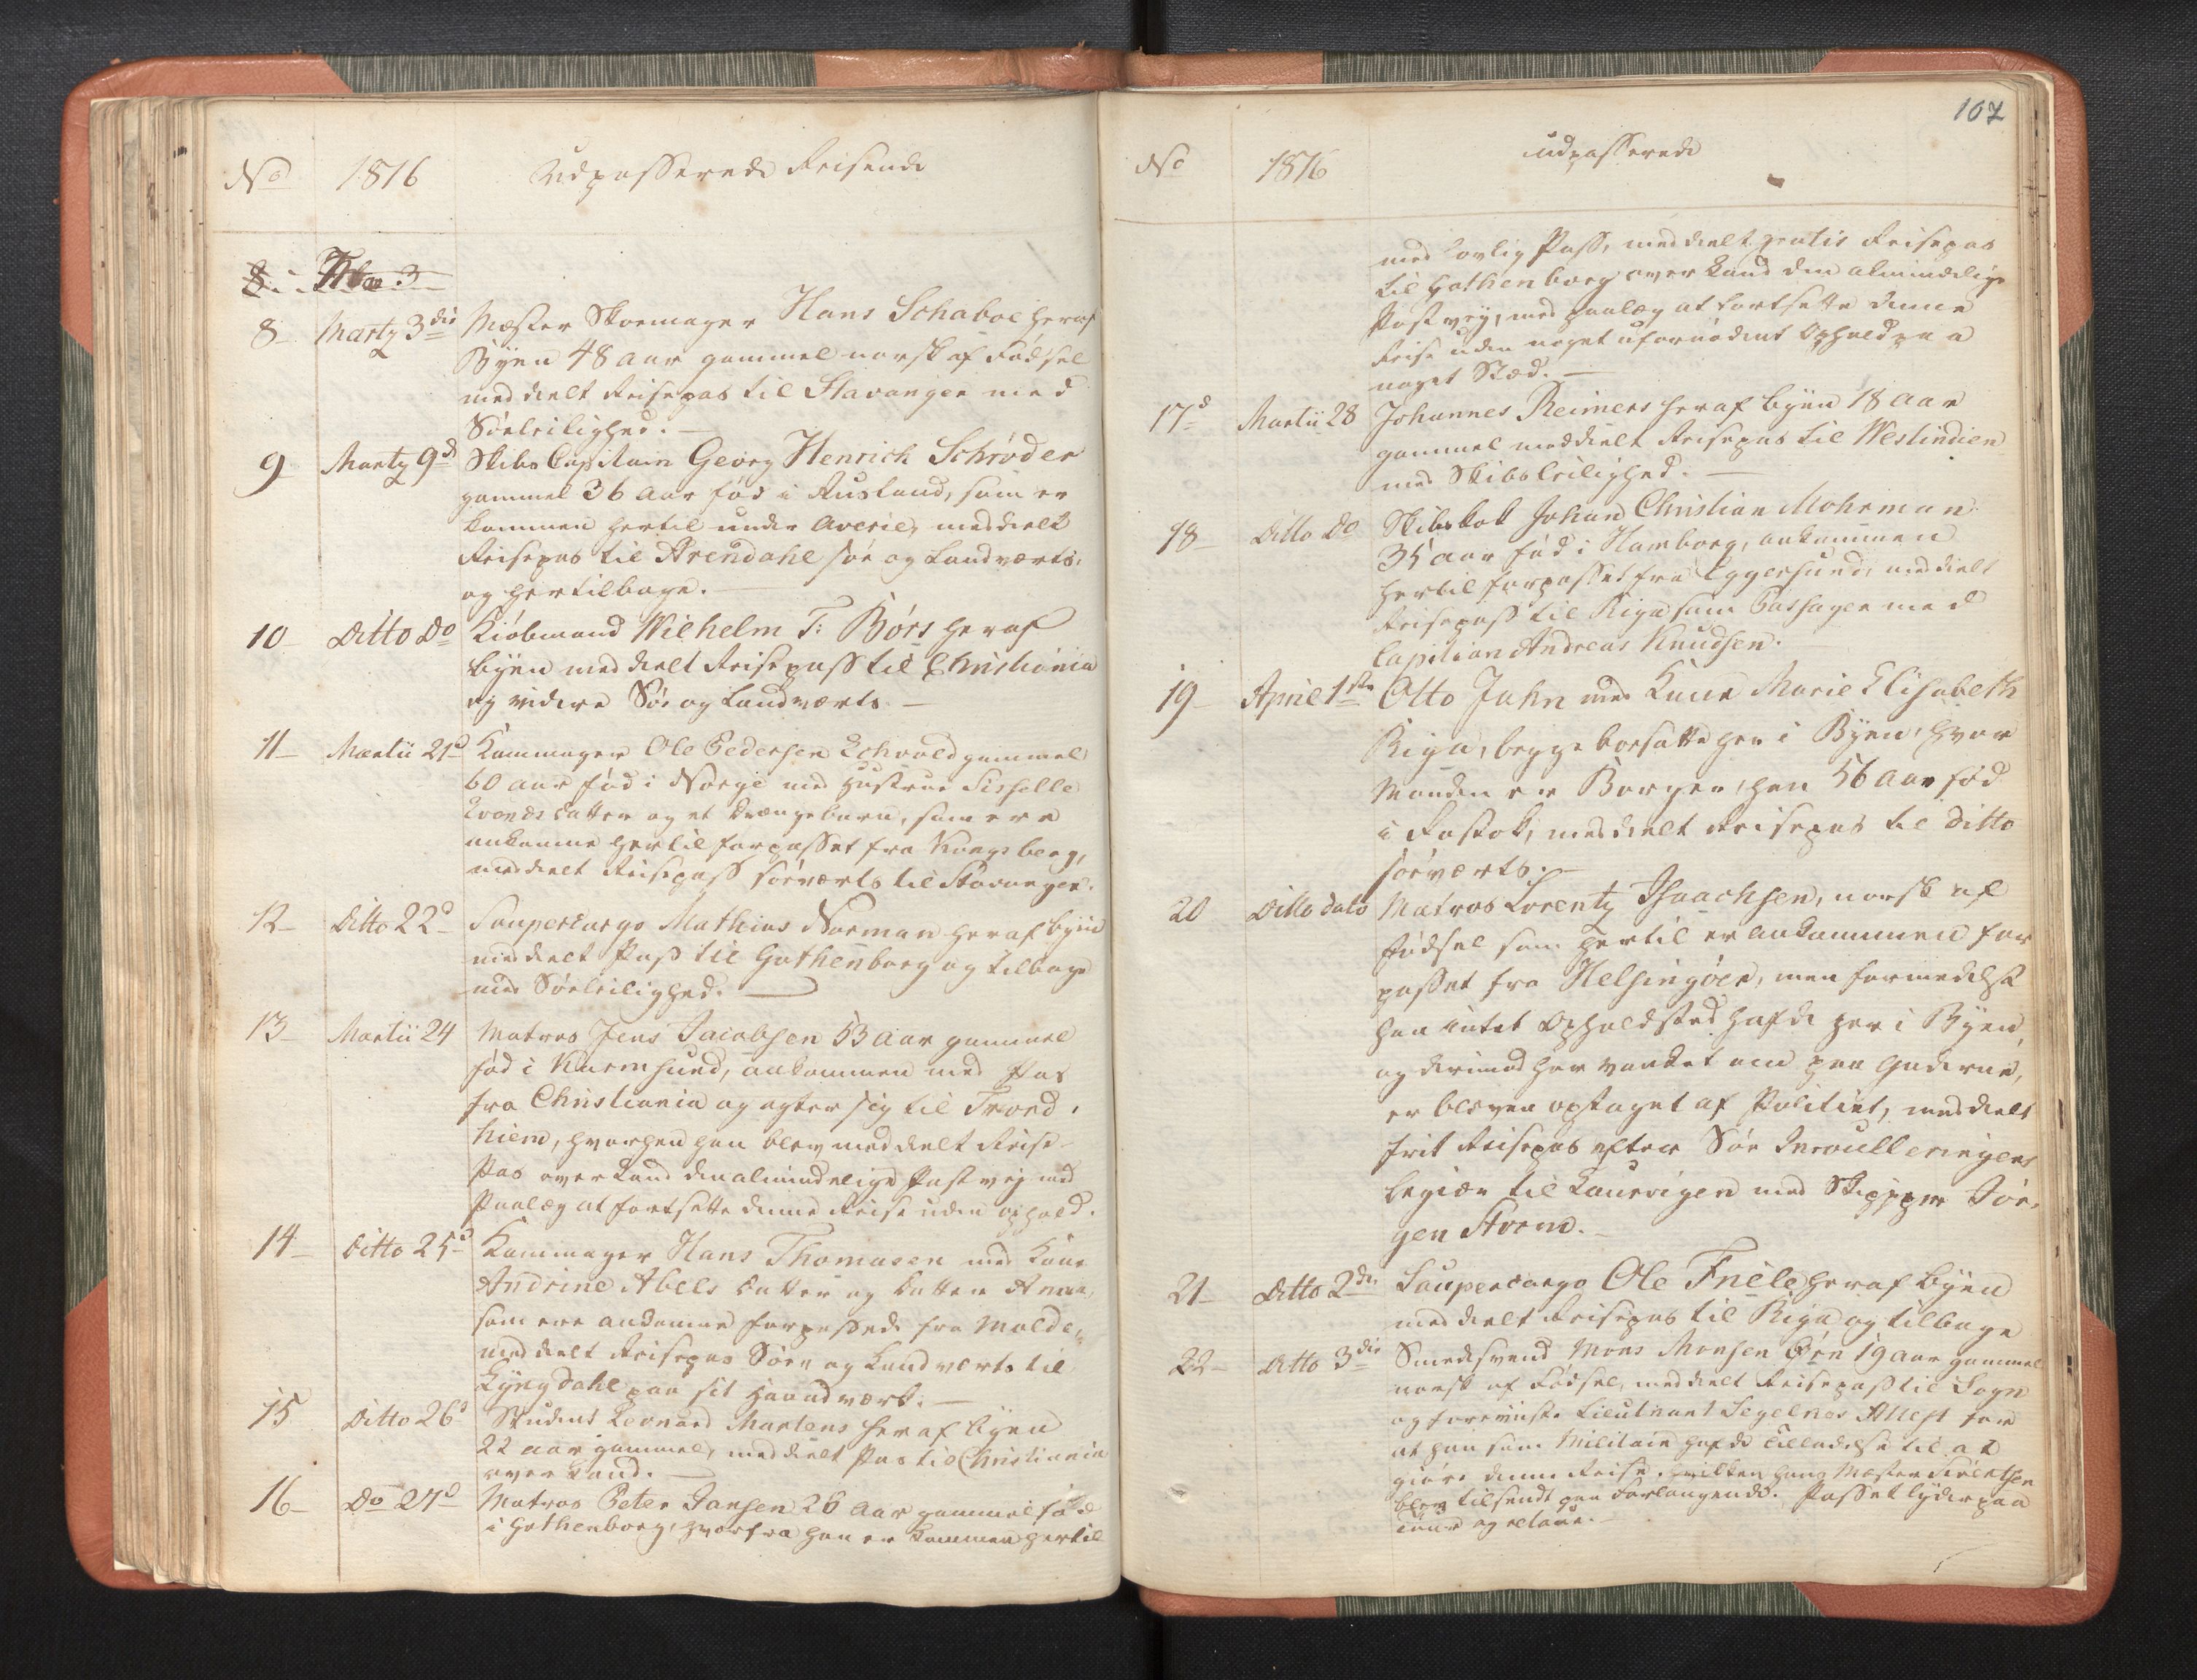 No 1816 Udpasserede Reisende
8. Mar 3
8 Marty 3die Mester Skomager Hans Schaboe heraf
Byen 48 aar gammel norsk af Fødsel
meddeelt Reisepas til Stavanger med
Søeleilighed.
9 Marty 9d Skibs Capitain Georg Henrich Schrøder
gammel 36 aar fød i Rusland, som er
kommen hertil under Averie, meddeelt
Reisepas til Arendahl søe og Landværts
og hertilbage.
10 Ditto Do Kiøbmand Wilhelm T: Børs heraf
byen meddeelt Reisepass til Christiania
og videre Søe og Landværts
11 Martii 21d Kammager Ole Pedersen Echvold gammel
60 aar fød i Norge med Hustrue Sisselle
datter og et Drængebarn, som ere
ankomne hertil forpasset fra Kongsberg,
meddeelt Reisepass søeværts til Stavanger.
12 Ditto 22d Soupercargo Mathias Norman heraf byen
meddeelt Pass til Gothenborg og tilbage
med Søeleilighed.
13 Martii 24 Matros Jens Jacobsen 53 aar gammel
fød i Karmsund, ankommen med Pas
fra Christiania og agter sig til Trond,
hiem, hvorhen han blev meddeelt Reise-
Pas over Land den alminde­lige Postvej med
Paalæg at fortsette denne Reise uden ophold.
14 Ditto 25d Kammager Hans Thomasen med Kone
Andrine Abels datter og datter Anne,
som ere ankomne forpassede fra Molde,
meddeelt Reisepas Søe og Landværts til
Lyngdahl paa sit Haandværk.
15 Ditto 26d Student Leonard Martens heraf byen
22 aar gammel, meddeelt Pas til Christiania
over Land.
16 Do 27d Matros Peter Jansen 26 aar gammel fød
i Gothenborg, hvorfra han er kommen hertil
107
No 1816 udpasserede
med lovlig Pass, meddeelt gratis Reisepas
til Gothenborg over Land den almindelige
Postvej, med paalæg at fortsette denne
Reise uden noget ufornødent Ophold paa
noget Stæd.
17d Martii 28 Johannes Reimers heraf byen 18 aar
gammel meddeelt Reisepas til Westindien
med Skibsleilighed.
18 Ditto Do Skibskok Johan Christian Mohrman
35 aar fød i Hamborg, ankommen
hertil forpasset fra Eggersund, meddeelt
Reisepass til Riga som Passager med
Capitian Andreas Knudsen.
19 April 1ste Otto Jahn med Kone Marie Elisabeth
Riga, begge bosatte her i Byen, hvor
Manden er Borger, han 56 aar fød
i Rostok, meddeelt Reisepas til ditto
søeværts.
20 Ditto dato Matros Lorentz Isaachsen, norsk af
fødsel som hertil er ankommen for
passet fra Helsingøer, men formedelst
han intet Opholdsted hafde her i Byen,
og derimod her vanket om paa Gaderne,
er bleven optaget af Politiet, meddeelt
frit Reisepas efter Søe Inroulleringens
begiær til Laurvigen med Skipper Jør,
gen Storm.
21 Ditto 2den Soupercargo Ole Friele heraf byen
meddeelt Reisepas til Riga og tilbage
22 Ditto 3die Smedesvend Mons Monsen Øen 19 aar gammel
norsk af Fødsel, meddeelt Reisepass til Sogn
og foreviiste Lieutnant Segelnes Attest for
at han som Militair hafde Tilladelse til at
giøre denne Reise, hvilken hans Mester
blev tilsendt paa Forlangende. Passet lyder paa
tour og retour.